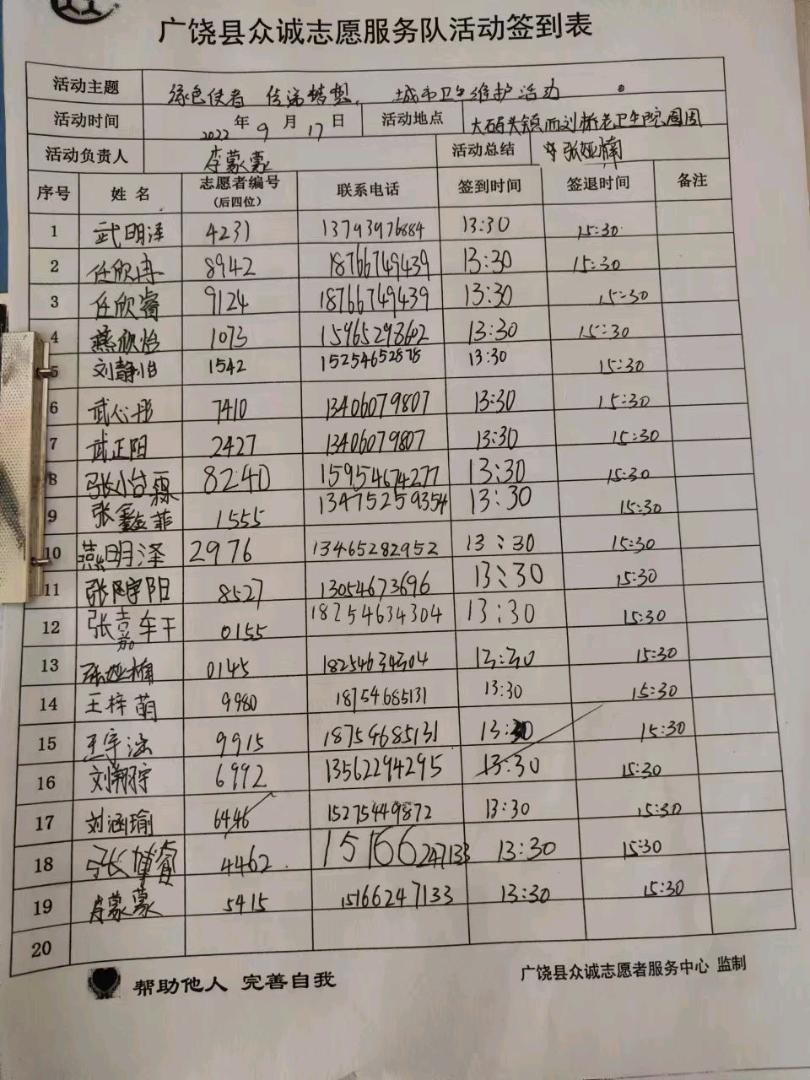 广饶县众诚志愿服务队活动签到表
活动主题 绿色使者 传递梦想, 城市卫生维护活动。
活动时间 2022年9月17日 活动地点 大码头镇西刘桥老卫生院周围
活动负责人 李蒙蒙 活动总结 张娅楠
序号 姓名 志愿者编号（后四位） 联系电话 签到时间 签退时间 备注
1 武明泽 4231 13793976884 13:30 15:30
2 任欣冉 8942 18766749439 13:30 15:30
3 任欣睿 9124 18766749439 13:30 15:30
4 燕欣怡 1073 15965293602 13:30 15:30
5 刘静怡 1542 15254652878 13:30 15:30
6 武心彤 7410 13406079807 13:30 15:30
7 武正阳 2427 13406079807 13:30 15:30
8 张小台霖 8240 15954674277 13:30 15:30
9 张鑫菲 1555 13475259354 13:30 15:30
10 燕明泽 2976 13465282952 13:30 15:30
11 张宇阳 8527 13054673696 13:30 15:30
12 张嘉轩 0155 18254634304 13:30 15:30
13 张娅楠 0145 18254634304 13:30 15:30
14 王梓萌 9980 18754685131 13:30 15:30
15 王宇涵 9915 18754685131 13:30 15:30
16 刘翔宇 6992 13562294295 13:30 15:30
17 刘涵瑜 6446 15275449872 13:30 15:30
18 张博睿 4462 15166247133 13:30 15:30
19 李蒙蒙 5415 15166247133 13:30 15:30
20
帮助他人 完善自我 广饶县众诚志愿者服务中心 监制